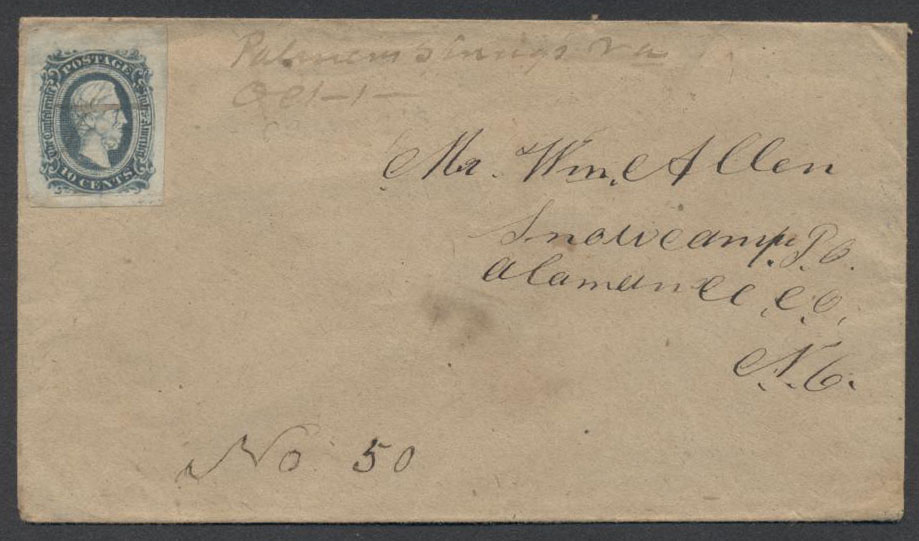 POSTAGE
The Confederate States of America
10 CENTS.
Palmers Springs Va
Oct-1-
Mr. Wm. Allen
Snowcamp P.O.
Alamance Co.
N.C.
No. 50